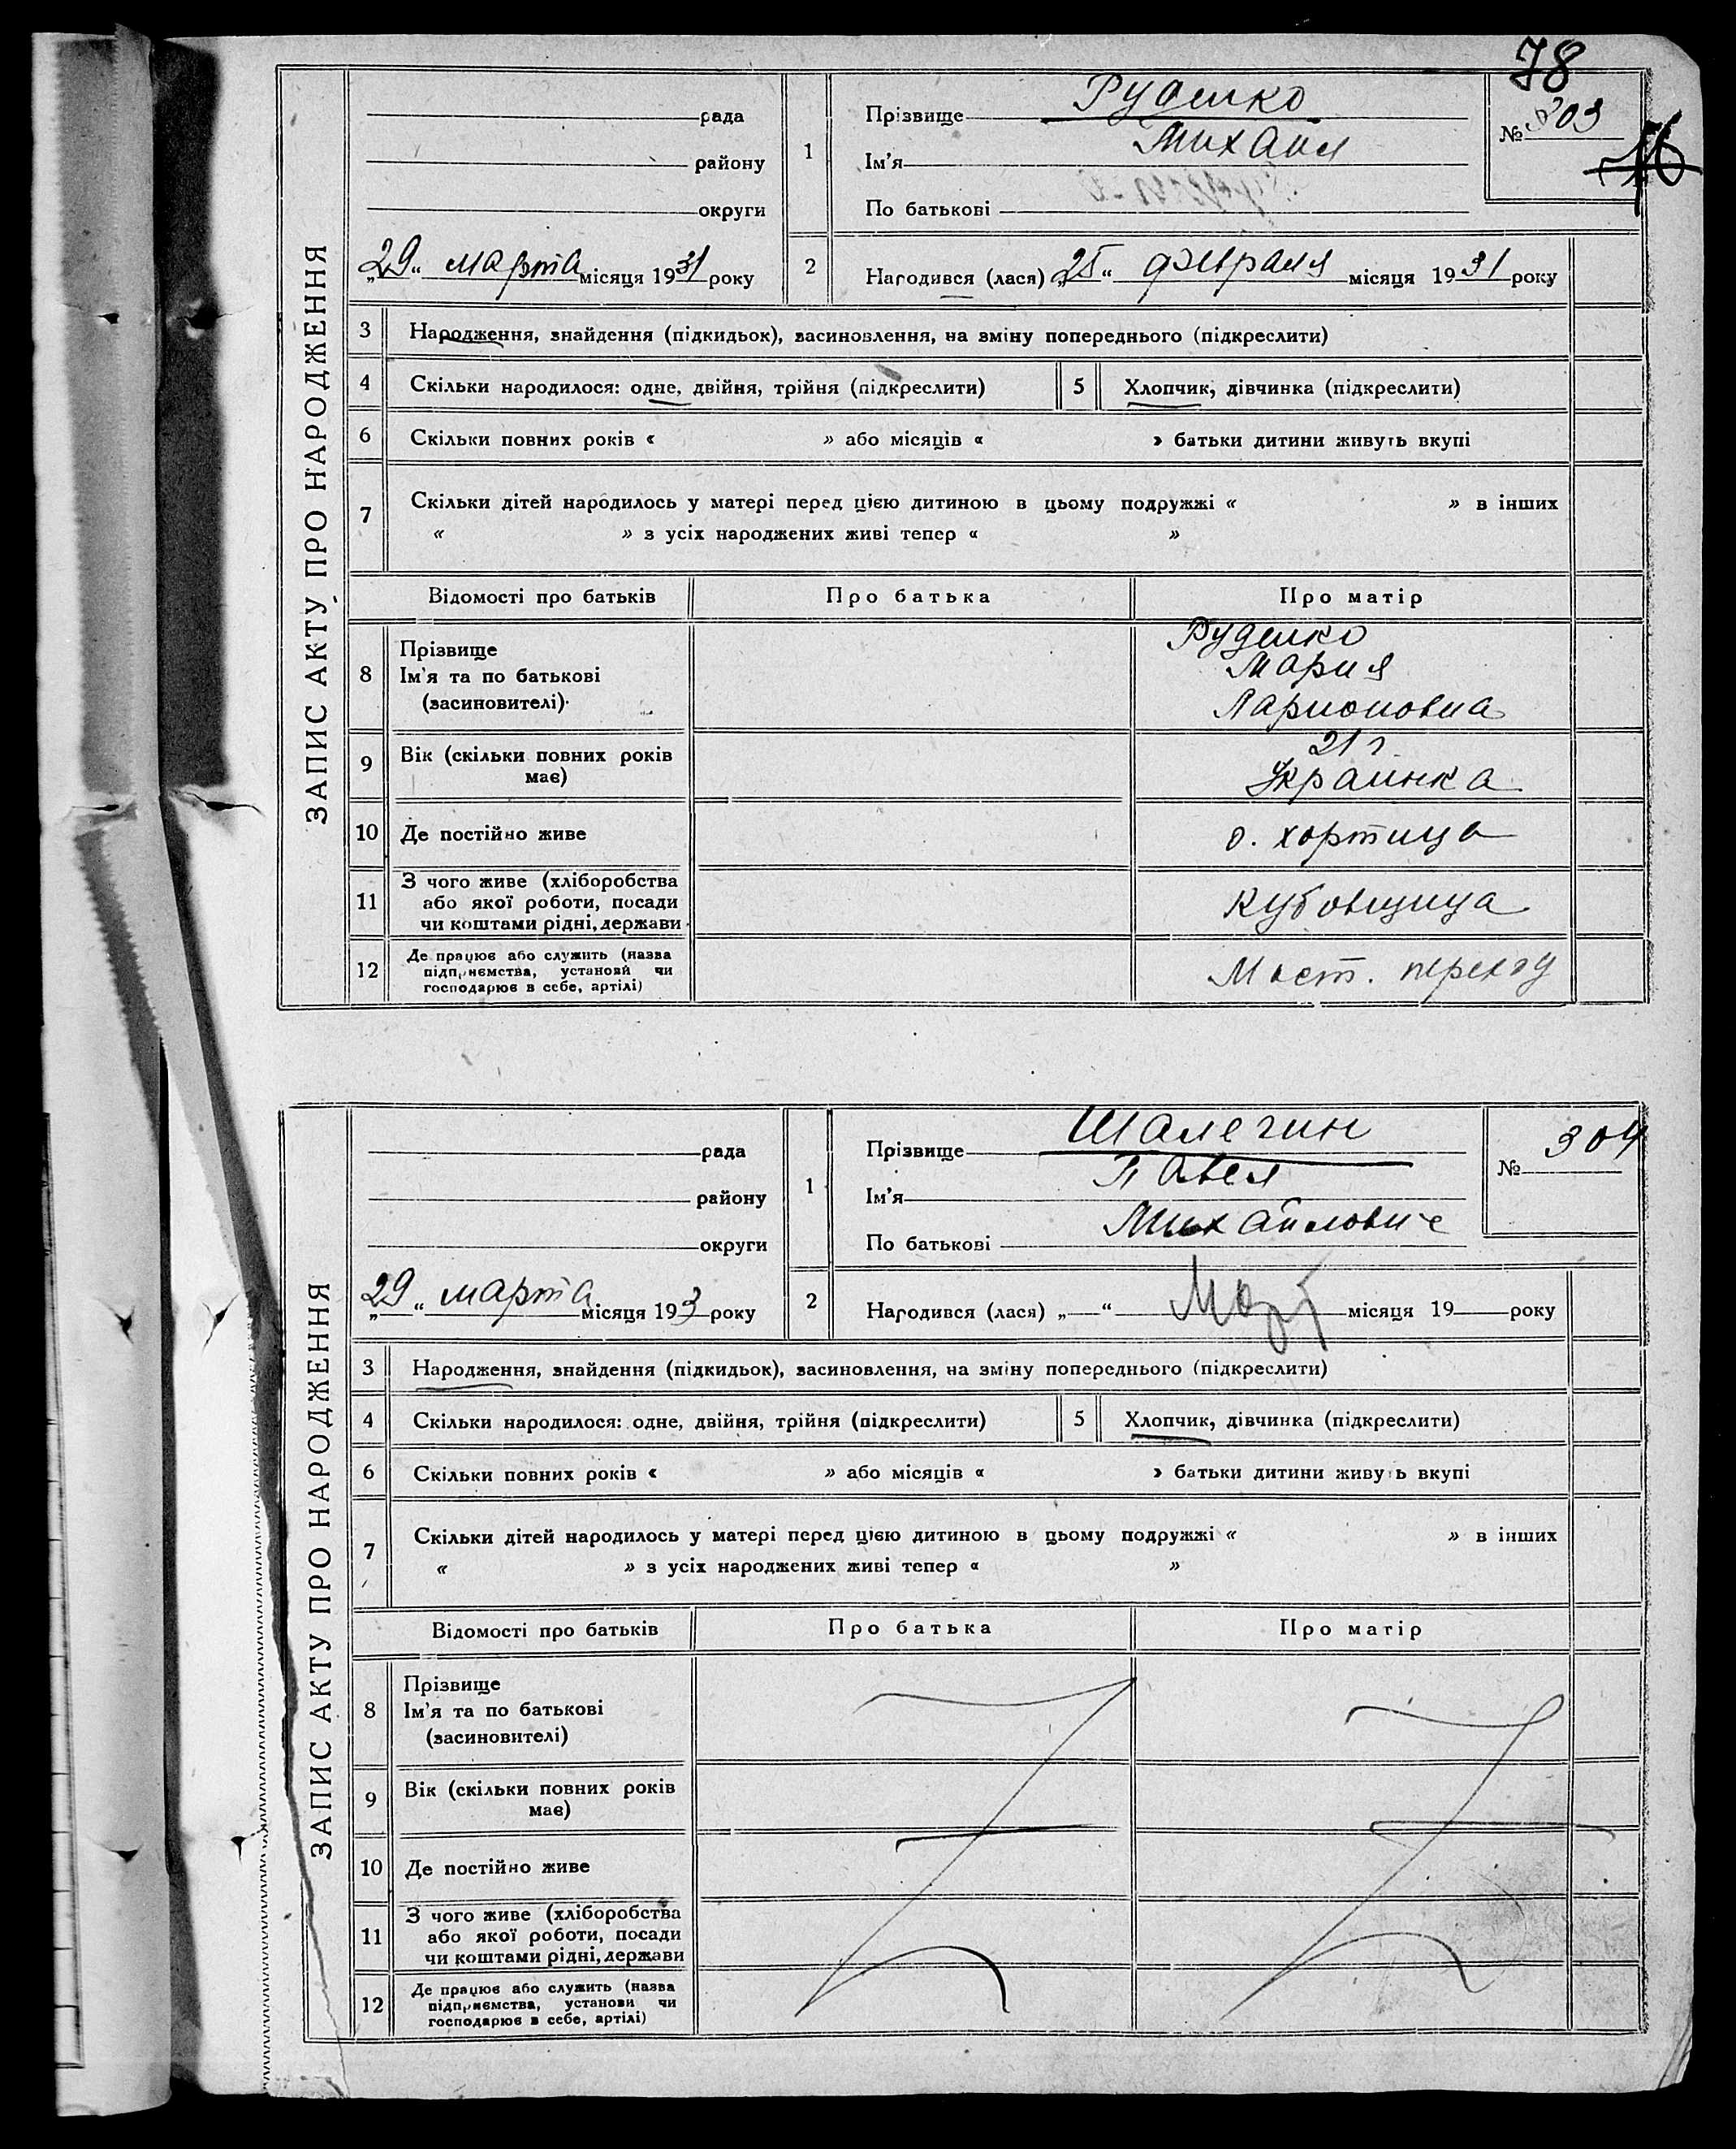 78
ЗАПИС АКТУ ПРО НАРОДЖЕННЯ
рада
району
округи
„29“ марта місяця 1931 року
1
Прізвище Руденко
Ім'я Михаил
По батькові
№ 303
16
2
Народився (лася) „25“ февраля місяця 1931 року
3 Народження, знайдення (підкидьок), засиновлення, на зміну попереднього (підкреслити)
4 Скільки народилося: одне, двійня, трійня (підкреслити) 5 Хлопчик, дівчинка (підкреслити)
6 Скільки повних років « » або місяців « » батьки дитини живуть вкупі
7 Скільки дітей народилось у матері перед цією дитиною в цьому подружжі « » в інших
« » з усіх народжених живі тепер « »
Відомості про батьків Про батька Про матір
8 Прізвище Ім'я та по батькові (засиновителі)
Руденко
Мария
Ларионовна
9 Вік (скільки повних років має)
21 г.
Украинка
10 Де постійно живе о. хортица
11 З чого живе (хліборобства або якої роботи, посади чи коштами рідні, держави
Кубовщица
12 Де працює або служить (назва підприємства, установи чи господарює в себе, артілі)
Мост.
ЗАПИС АКТУ ПРО НАРОДЖЕННЯ
рада
району
округи
„29“ марта місяця 193 року
1
Прізвище Шалегин
Ім'я Павел
По батькові Михайлович
№ 304
2
Народився (лася) „ “ місяця 19 року
3 Народження, знайдення (підкидьок), засиновлення, на зміну попереднього (підкреслити)
4 Скільки народилося: одне, двійня, трійня (підкреслити) 5 Хлопчик, дівчинка (підкреслити)
6 Скільки повних років « » або місяців « » батьки дитини живуть вкупі
7 Скільки дітей народилось у матері перед цією дитиною в цьому подружжі « » в інших
« » з усіх народжених живі тепер « »
Відомості про батьків Про батька Про матір
8 Прізвище
Ім'я та по батькові
(засиновителі)
9 Вік (скільки повних років
має)
10 Де постійно живе
11 З чого живе (хліборобства
або якої роботи, посади
чи коштами рідні, держави
12 Де працює або служить (назва
підприємства, установи чи
господарює в себе, артілі)